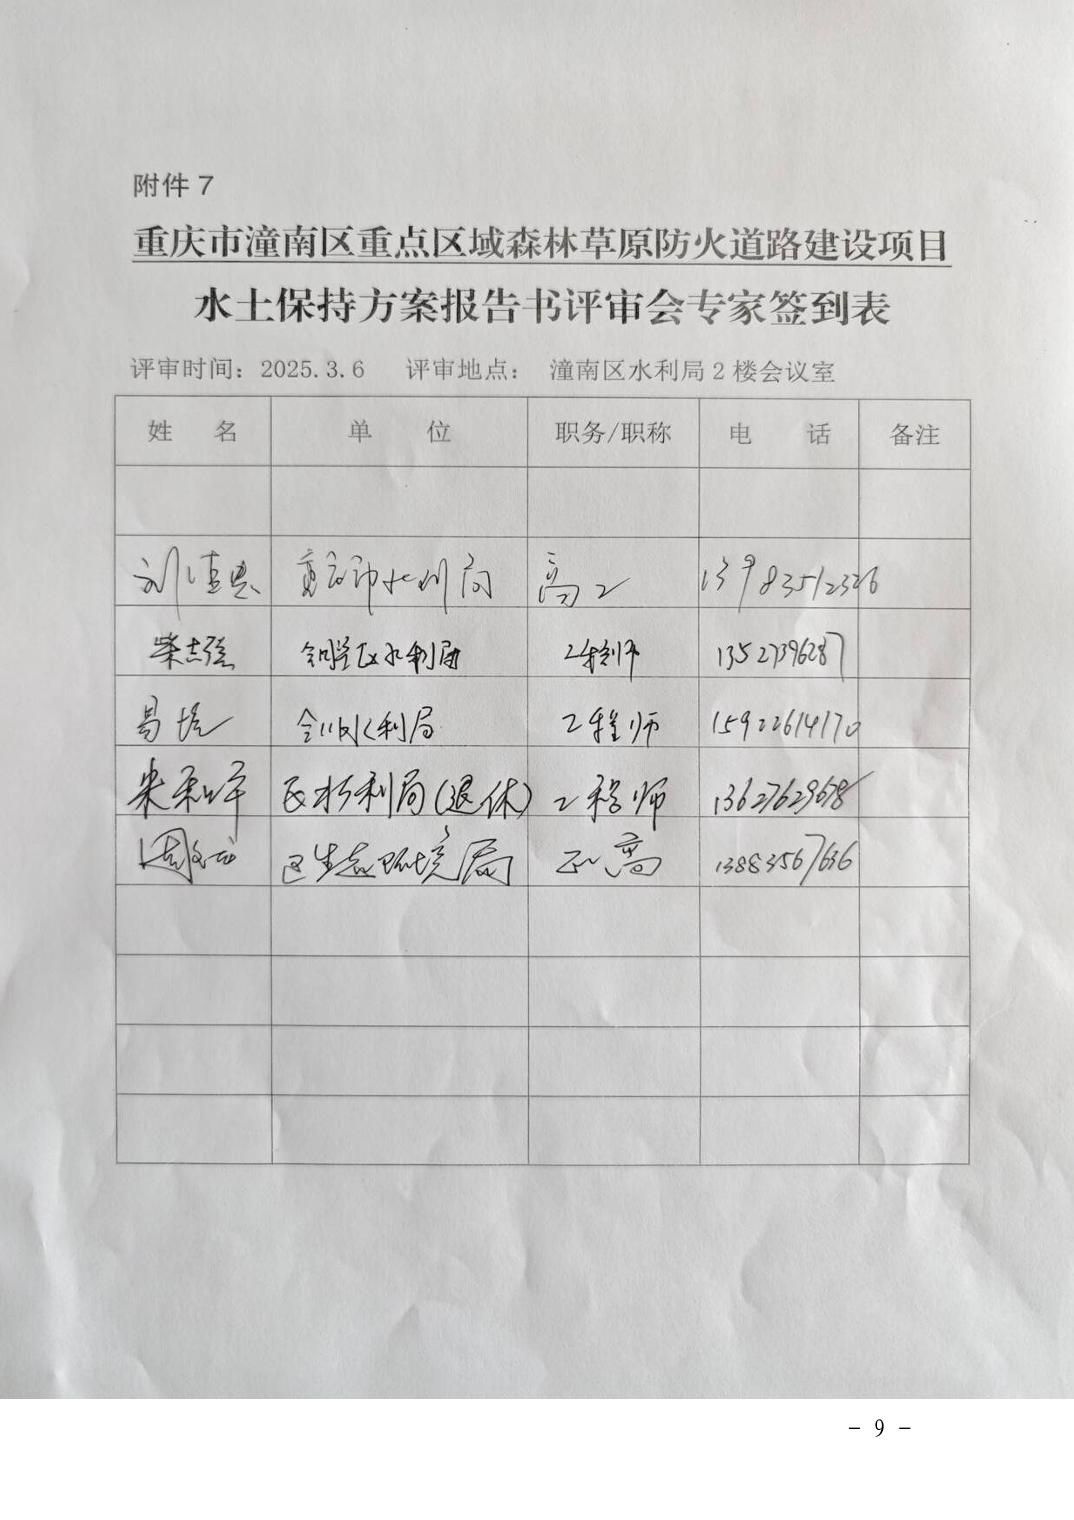 附件7
重庆市潼南区重点区域森林草原防火道路建设项目
水土保持方案报告书评审会专家签到表
评审时间：2025.3.6 评审地点： 潼南区水利局2楼会议室
姓 名 单 位 职务/职称 电 话 备注
重庆市水利局 高工 13983512326
柴志强 铜梁区水利局 工程师 13527396287
易 水利局 工程师 15922614170
米和平 区水利局(退休) 工程师 13627629678
周 区生态环境局 正高 13883567636
- 9 -